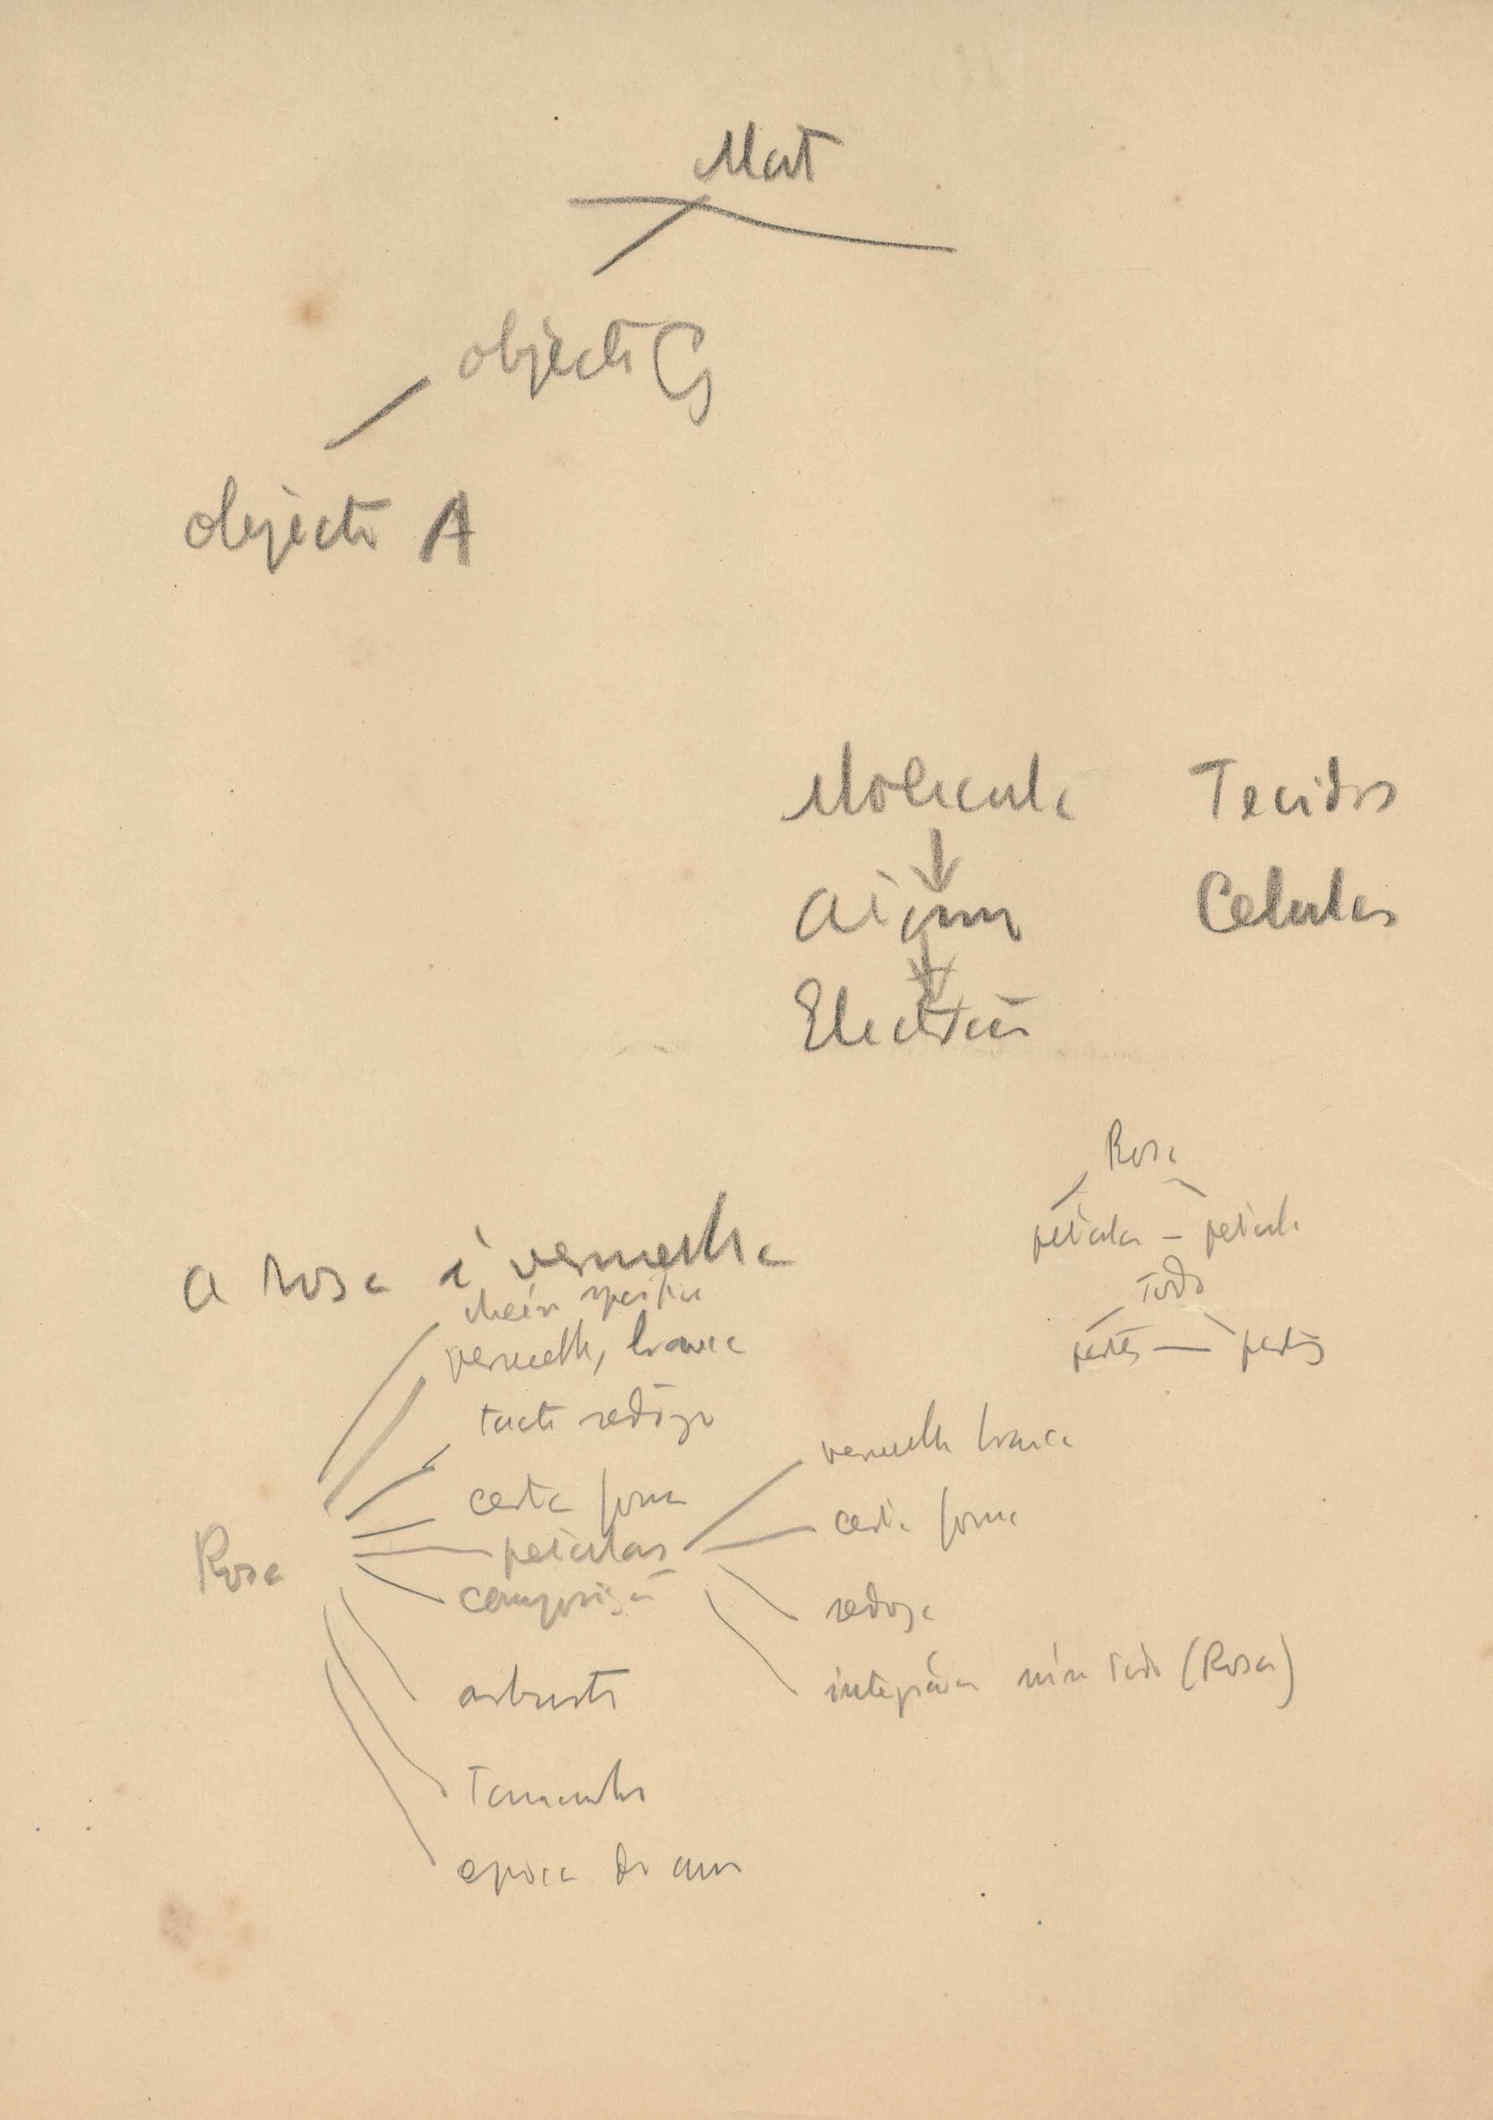 Mat
objecto G
objecto A
Molecula Tecidos
Atomo Celulas
Electrão
Rosa
petala – petala
Todo
partes — partes
A rosa é vermelha
cheiro
vermelha, branca
tacto
certa forma
petalas
composição
Rosa
arbusto
Tamanho
epoca do ano
vermelha branca
certa forma
integrada num todo (Rosa)